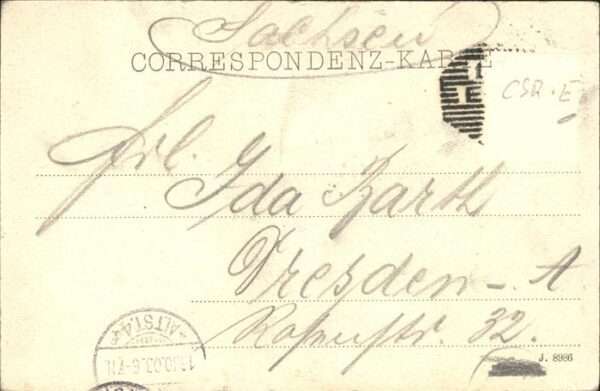 Sachsen
CORRESPONDENZ-KARTE
CSR. E
Frl.
Ida Barth
Dresden-A
Rosenstr. 32.
ALTST.
J. 8986